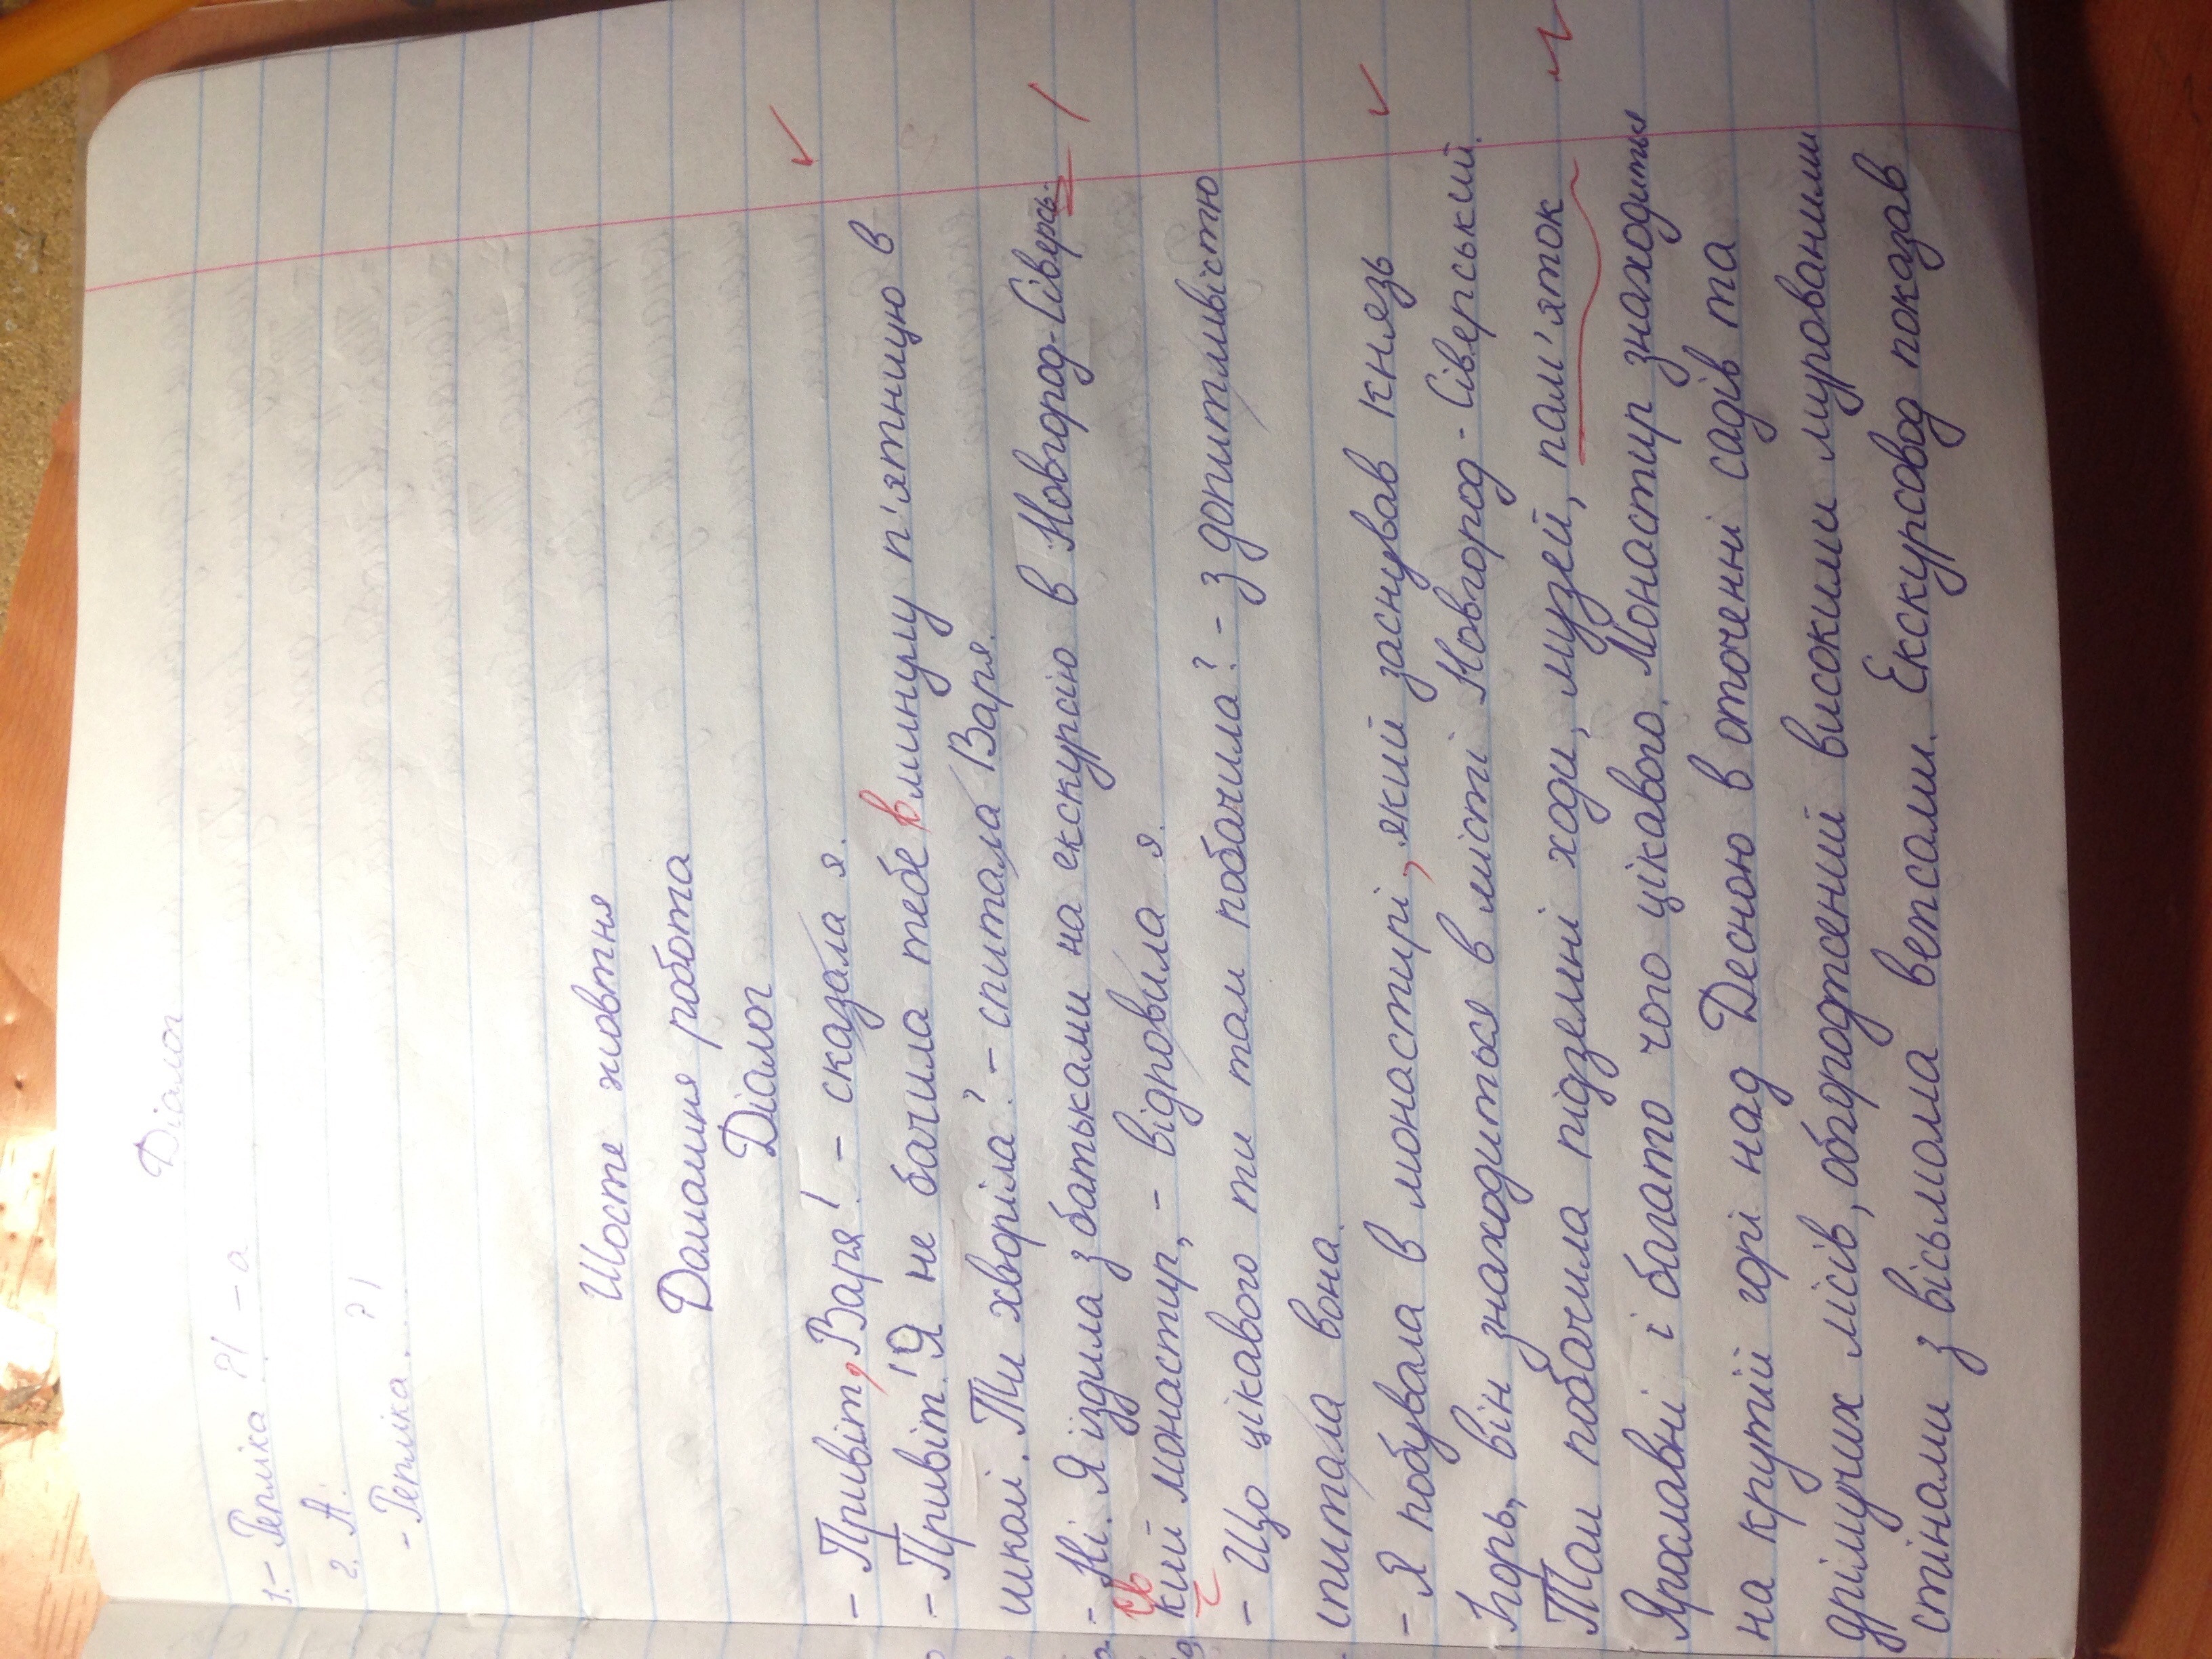 Діалог
1. - Репліка ?! - а
2. А:
- Репліка. ?!
Шосте жовтня
Домашня робота
Діалог
- Привіт, Варя! - сказала я.
- Привіт! Я не бачила тебе в минулу п'ятницю в
школі. Ти хворіла? - спитала Варя.
- Ні. Я їздила з батьками на екскурсію в Новгород-Сіверсь-
ський монастир, - відповила я.
- Що цікавого ти там побачила? - з допитливістю
спитала вона.
- Я побувала в монастирі, який заснував князь
Ігорь, він знаходиться в місті Новгород-Сіверський.
Там побачила підземні ходи, музей, пам'яток
Ярославні і багато чого цікавого. Монастир знаходится
на крутій горі над Десною в оточенні садів та
дрімучих лісів, обгороджений високими мурованими
стінами з вісьмома вепсами. Екскурсовод показав